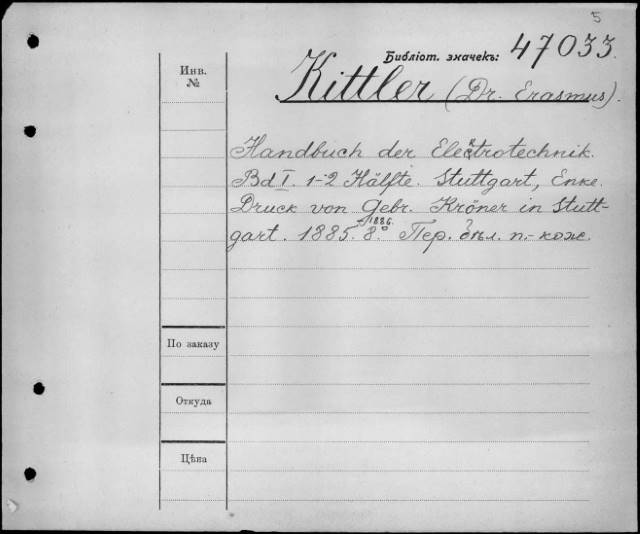 5
Библіот. значекъ: 47033.
Инв.
№
Kittler (Dr. Erasmus).
Handbuch der Elektrotechnik.
Bd I. 1-2 Hälfte. Stuttgart, Enke.
Druck von Gebr. Kröner in Stutt-
gart. 1885. 1886. 8º Пер. бѣл. п.-кож.
По заказу
Откуда
Цѣна